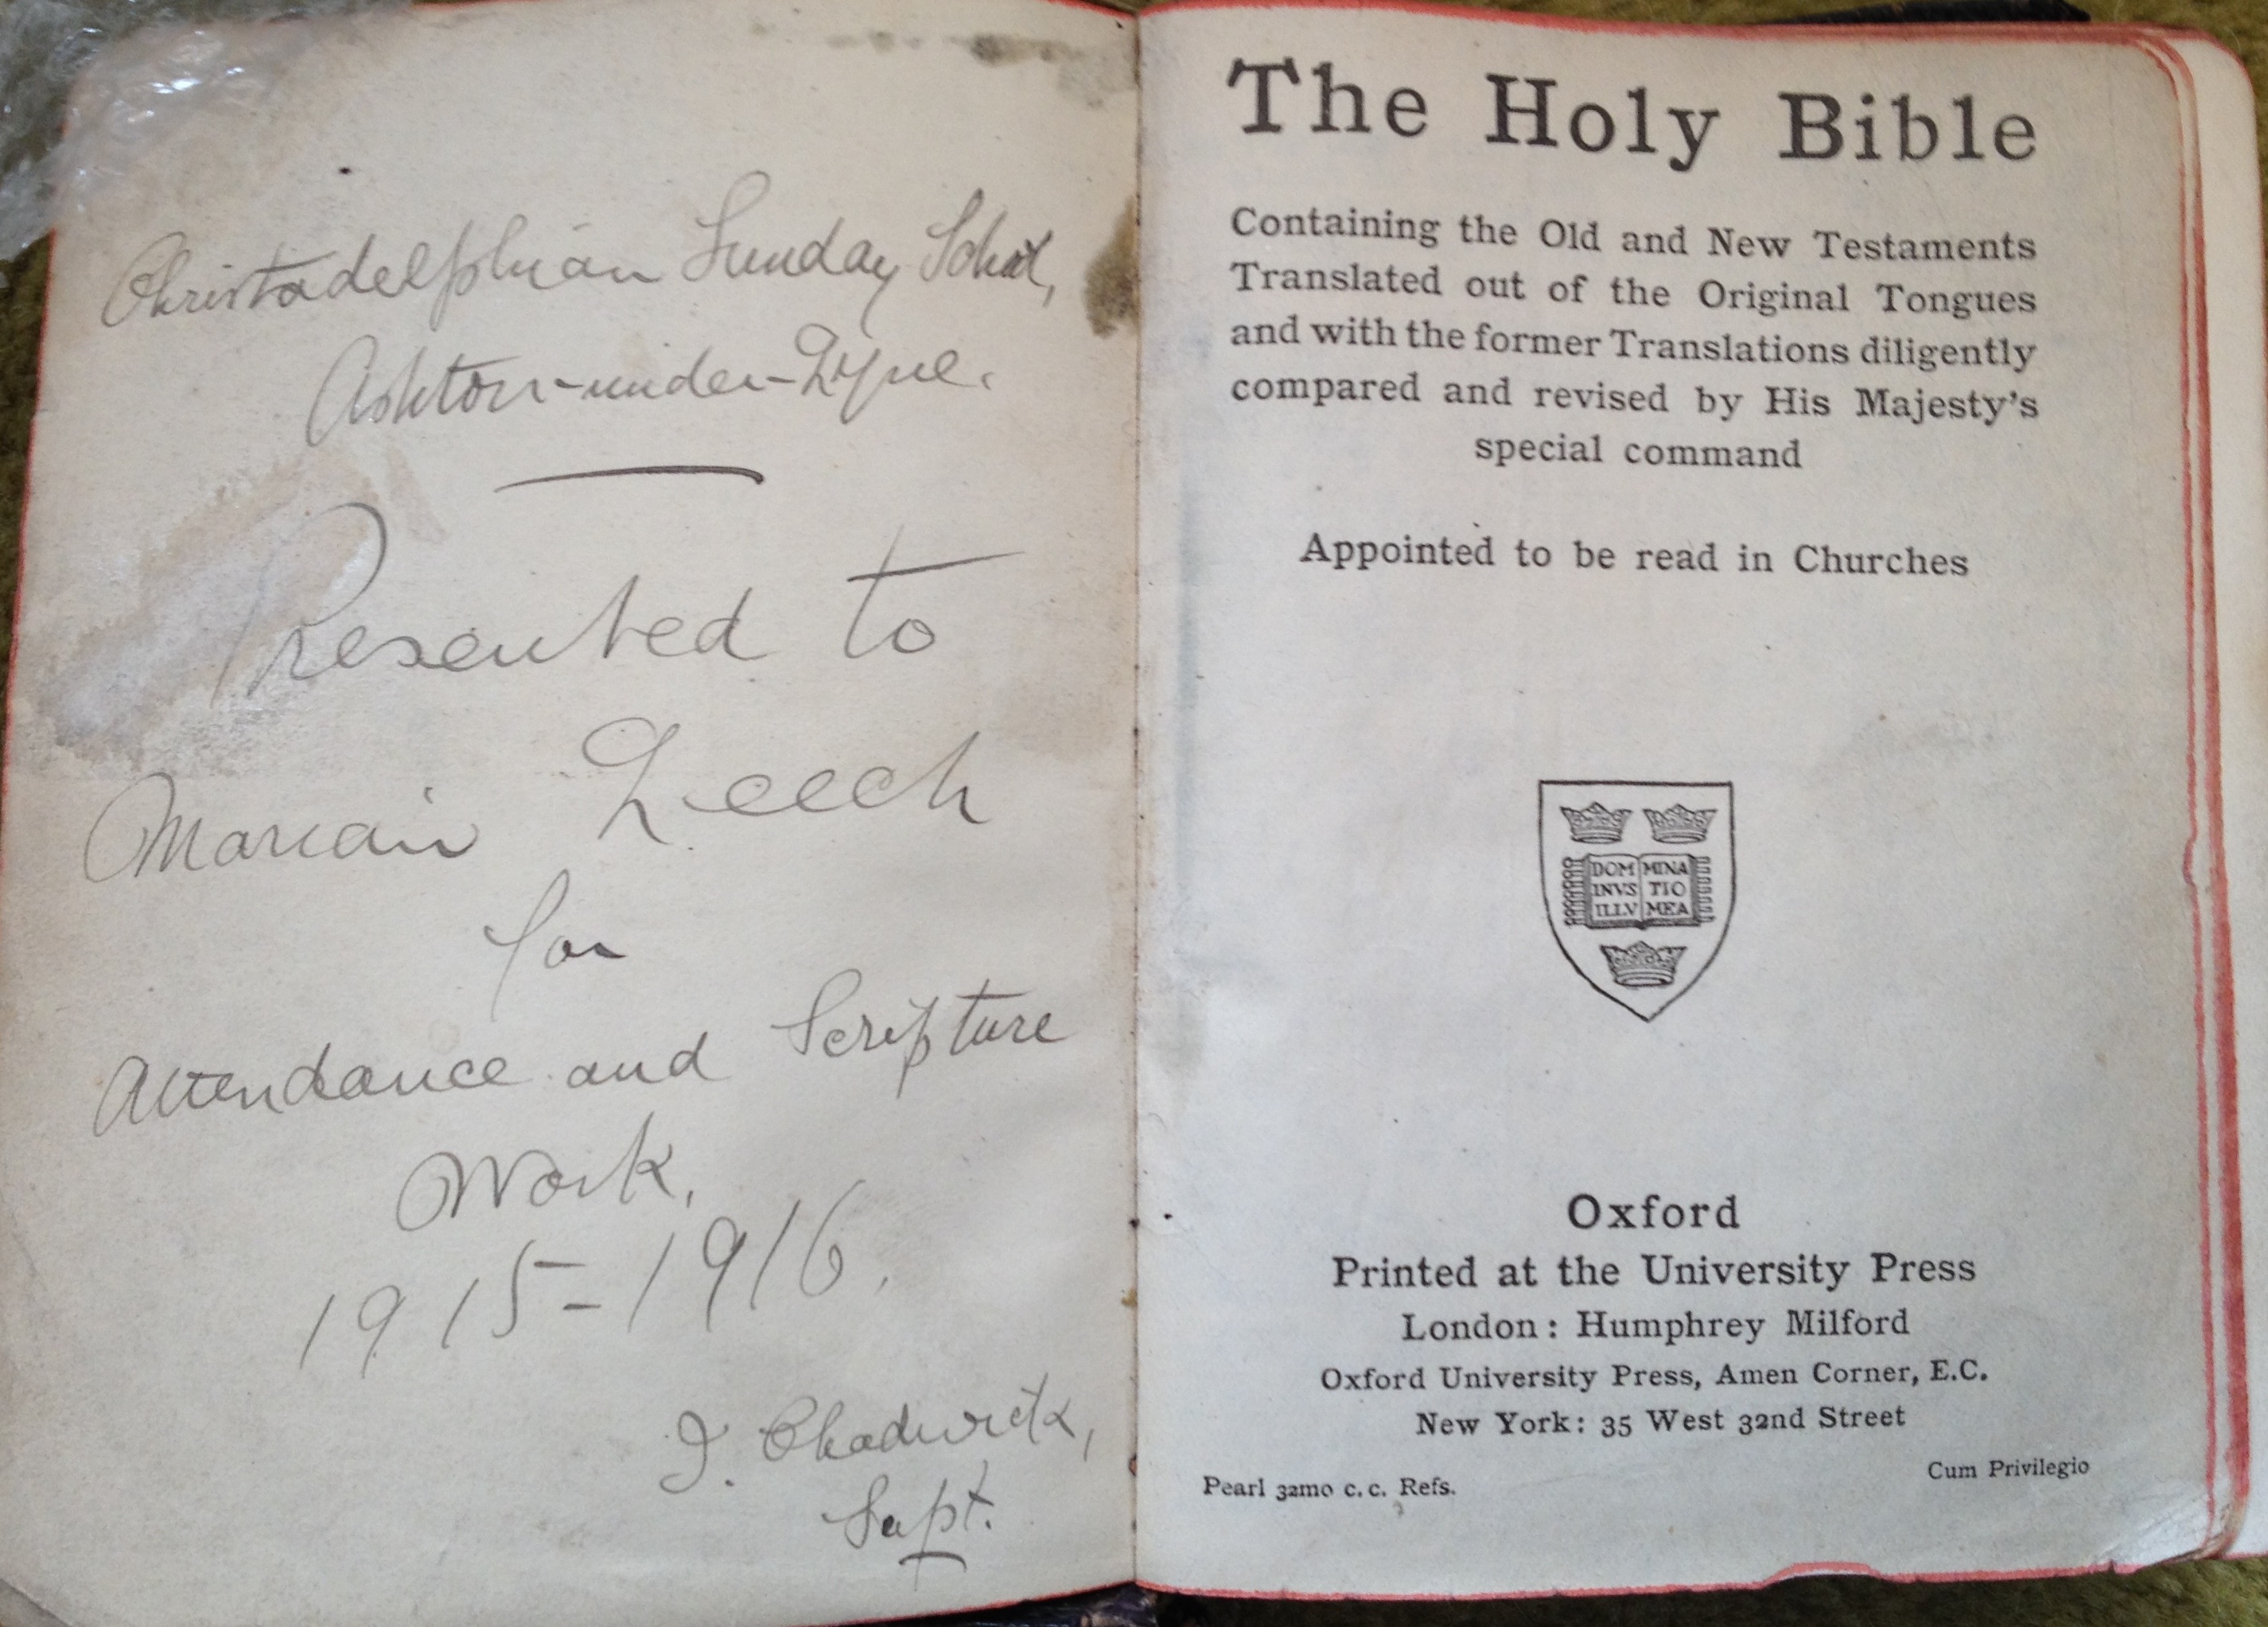 Christadelphian Sunday School,
Ashton-under-Lyne.
Presented to
Marian Leech
for
Attendance and Scripture
Work.
1915-1916.
J. Chadwick,
Supt.
The Holy Bible
Containing the Old and New Testaments
Translated out of the Original Tongues
and with the former Translations diligently
compared and revised by His Majesty's
special command
Appointed to be read in Churches
DOM MINA
INVS TIO
ILLV MEA
Oxford
Printed at the University Press
London: Humphrey Milford
Oxford University Press, Amen Corner, E.C.
New York: 35 West 32nd Street
Cum Privilegio
Pearl 32mo c.c. Refs.